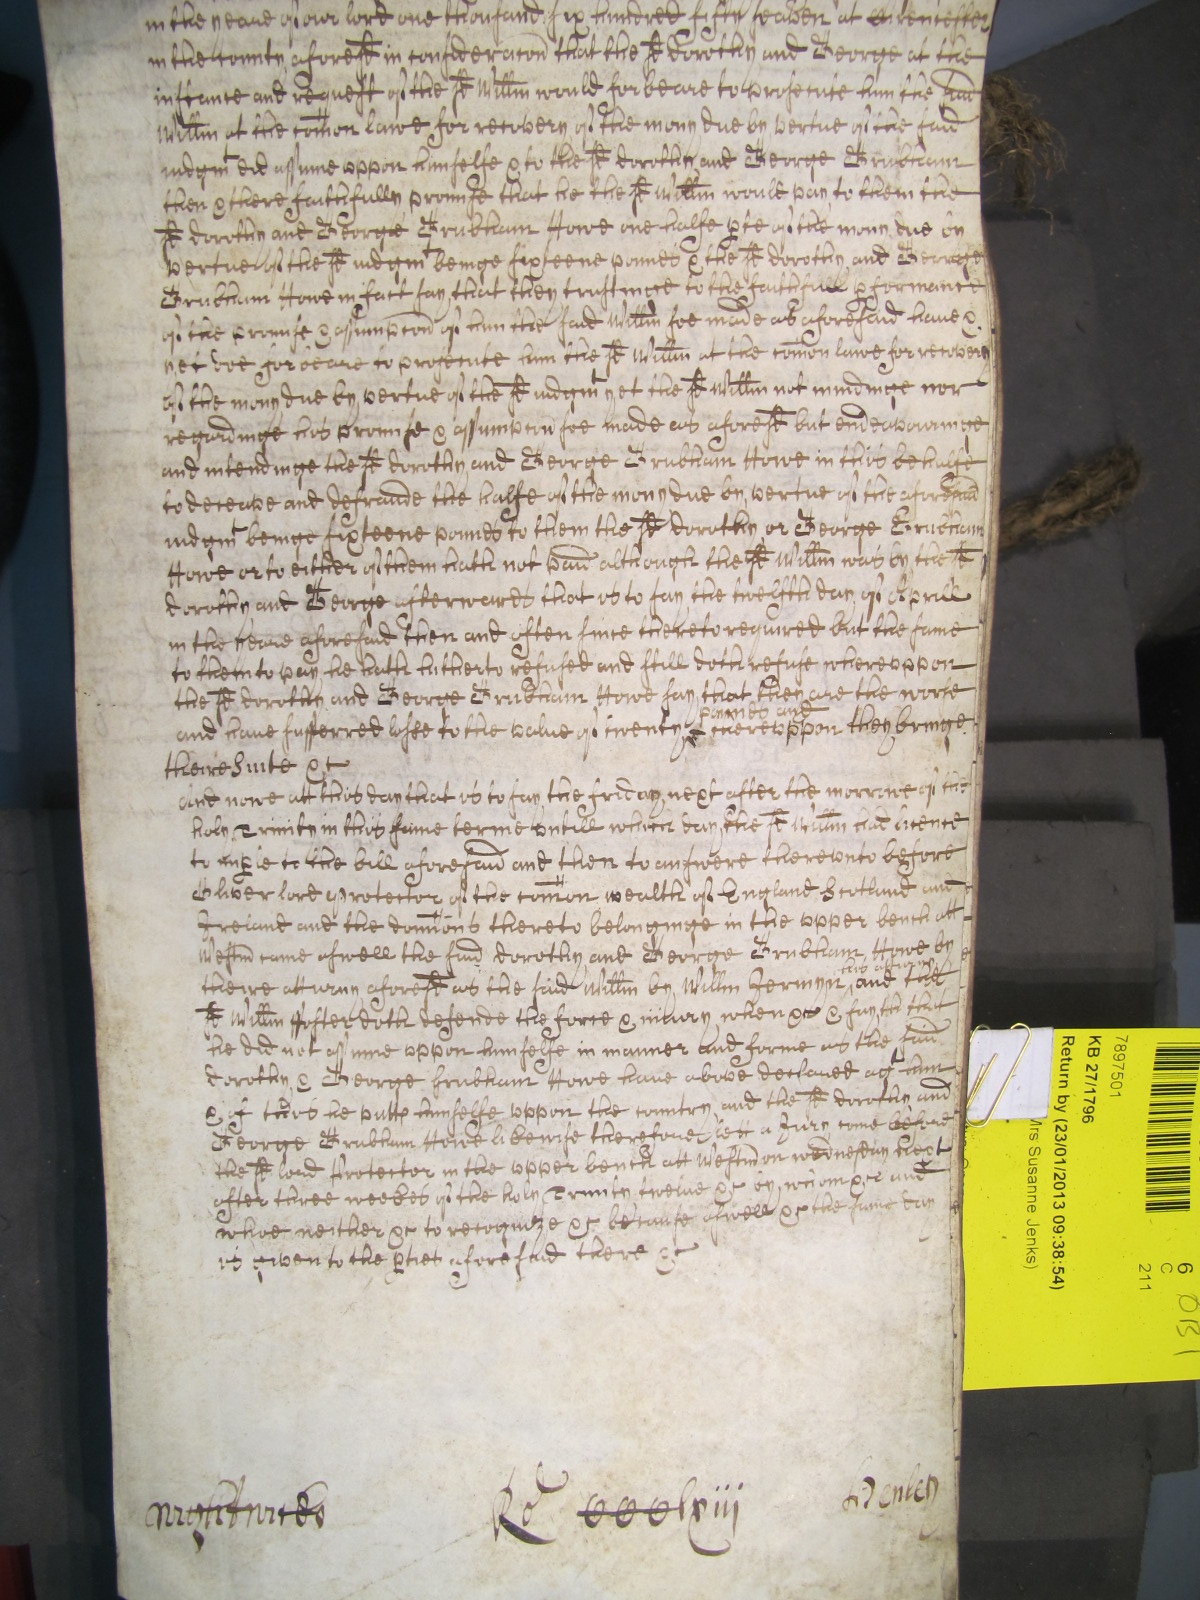 in the yeare of our lord one thousand six hundred fifty seaven at Cirencester
in the county afores͠d in consideracōn that the s͠d dorothy and George at the
instance and request of the s͠d Willm̄ would forbeare to prosecute him the said
Willm̄ at the com̄on lawe for recovery of the mony due by vertue of the said
iudgmt did assume uppon himselfe & to the s͠d dorothy and George Grubham
then & there faithfully promise that he the s͠d Willm̄ would pay to them the
s͠d dorothy and George Grubham Howe one halfe p̄te of the mony due by
vertue of the s͠d iudgmt beinge sixteene pounds & the s͠d dorothy and George
Grubham Howe in fact say that they trustinge to the faithfull p̄formance
of the promise & assumpcōn of him the said Willm̄ soe made as aforesaid have &
yet doe forbeare to prosecute him the s͠d Willm̄ at the com̄on lawe for recovery
of the mony due by vertue of the s͠d iudgmt yet the s͠d Willm̄ not mindinge nor
regardinge his promise & assumpcōn soe made as afores͠d but endeavouringe
and intendinge the s͠d dorothy and George Grubham Howe in this behalfe
to deceave and defraude the halfe of the mony due by vertue of the aforesaid
iudgmt beinge sixteene pounds to them the s͠d dorothy or George Grubham
Howe or to either of them hath not paid although the s͠d Willm̄ was by the s͠d
dorothy and George afterwards that is to say the twelfth day of Aprill
in the yeare aforesaid then and often since thereto required but the same
to them to pay he hath hitherto refused and still doth refuse whereuppon
the s͠d dorothy and George Grubham Howe say that they are the worse
and have sufferred losse to the value of twenty pounds and thereuppon they bringe
theire suite &c
And nowe att this day that is to say the friday next after the morrowe of the
holy Trinity in this same terme untill which day the s͠d Willm̄ had licence
to imp̄le to the bill aforesaid and then to answere thereunto before
Oliver lord protector of the com̄on wealth of England Scotland and
Ireland and the domiōns thereto belonginge in the upper bench att
Westm̄ came aswell the said dorothy and George Grubham Howe by
theire attorny afores͠d as the said Willm̄ by Willm̄ Jermyn his attorny and the
s͠d Willm̄ ffoster doth defende the force & iniury when &c & sayth that
he did not assume uppon himselfe in manner and forme as the said
dorothy & George Grubham Howe have above declared agt him
& of this he putts himselfe uppon the country and the s͠d dorothy and
George Grubham Howe likewise therefore lett a Jury come before
the s͠d lord Protector in the upper bench att Westm̄ on wednesday next
after three weekes of the holy Trinity twelve &c by whom &c and
whoe neither &c to recognize &c because aswell &c the same day
is given to the p̄ties aforesaid there &c
Ro CCCClxiii
Henley
7897501
KB 27/1796
Return by (23/01/2013 09:38:54)
Mrs Susanne Jenks)
6
C
211